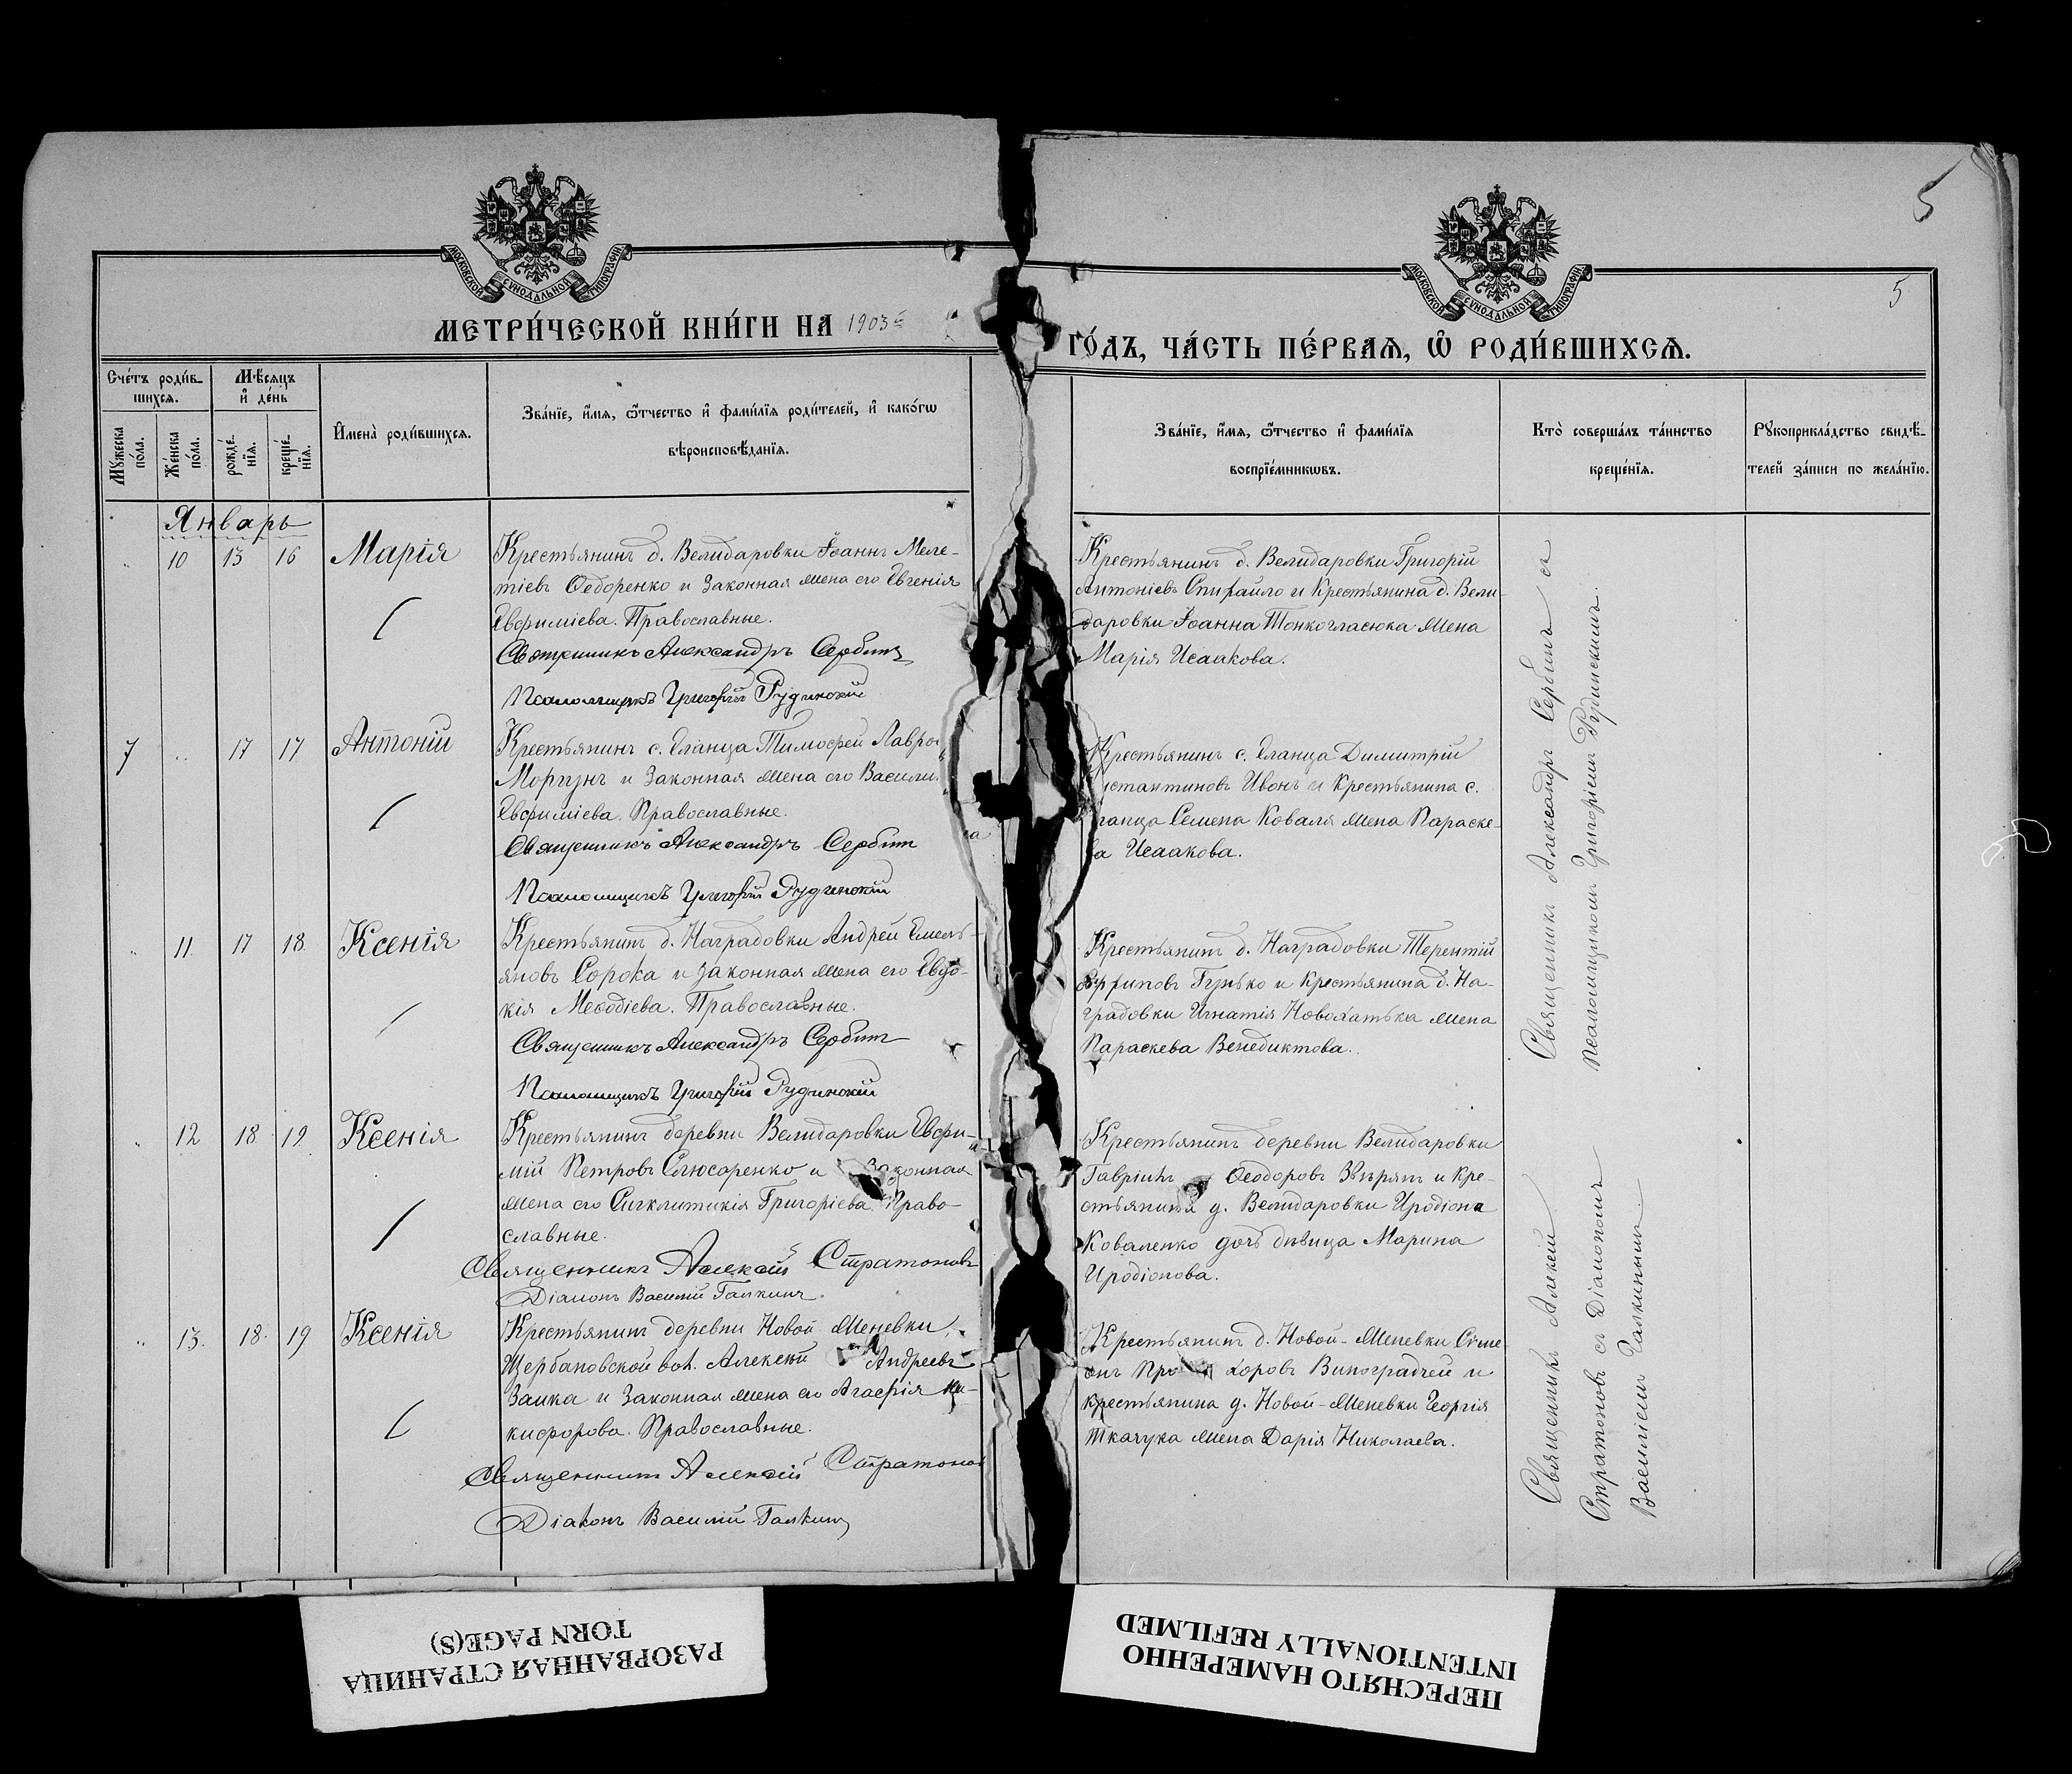 5
МОСКОВСКОЙ СѴНОДАЛЬНОЙ ТИПОГРАФІИ
МОСКОВСКОЙ СѴНОДАЛЬНОЙ ТИПОГРАФІИ
5
МЕТРИ́ЧЕСКОЙ КНИ́ГИ НА 1903й
ГО́ДЪ, ЧА́СТЬ ПЕ́РВАѦ, Ѡ҆ РОДИ́ВШИХСѦ.
Сче́тъ роди́в-
шихсѧ.
Мѣ́сѧцъ
и҆ де́нь
Мꙋ́жеска
по́ла.
Же́нска
по́ла.
рожде́-
нїѧ.
креще́-
нїѧ.
И҆мена̀ роди́вшихсѧ.
Зва́нїе, и҆́мѧ, ѻ҆́тчество и҆ фами́лїѧ роди́телей, и҆ како́гѡ
вѣроисповѣ́данїѧ.
Зва́нїе, и҆́мѧ, ѻ҆́тчество и҆ фами́лїѧ
воспрїе́мникѡвъ.
Кто̀ соверша́лъ та́инство
креще́нїѧ.
Рꙋкоприкла́дство свидѣ́-
телей за́писи по жела́нїю.
Январь
„ 10 13 16 Марія
Крестьянинъ д. Велидаровки Іоаннъ Меле-
тіевъ Ѳедоренко и законная жена его Евгенія
Евфиміева. Православные.
Священникъ Александръ Сербинъ
Псаломщикъ Григорій Рудинскій
Крестьянинъ д. Велидаровки Григорій
Антоніевъ Спихайло и крестьянина д. Вели-
даровки Іоанна Тонкогласюка жена
Марія Исаакова.
7 „ 17 17 Антоній
Крестьянинъ с. Еланца Тимофей Лавро
Моргунъ и законная жена его Васили
Евфиміева. Православные.
Священникъ Александръ Сербинъ
Псаломщикъ Григорій Рудинскій
Крестьянинъ с. Еланца Димитрій
стантиновъ Ивонъ и крестьянина с.
ланца Семена Коваля жена Параске-
ва Исаакова.
Священникъ Александръ Сербинъ съ
Псаломщикомъ Григоріемъ Рудинскимъ.
„ 11. 17 18. Ксенія
Крестьянинъ д. Наградовки Андрей Емель-
яновъ Сорока и законная жена его Евдо-
кія Меѳодіева. Православные.
Священникъ Александръ Сербинъ
Псаломщикъ Григорій Рудинскій
Крестьянинъ д. Наградовки Терентій
Гунько и крестьянина д. На-
градовки Игнатія Новохатька жена
Параскева Венедиктова.
„ 12 18 19. Ксенія
Крестьянинъ деревни Велидаровки Евфи-
мій Петровъ Слюсаренко и законная
жена его Сигклитикія Григоріева. Право-
славные.
Священникъ Алексій Стратоновъ
Діаконъ Василій Галкинъ.
Крестьянинъ деревни Велидаровки
Гавріилъ Ѳеодоровъ Звѣрякъ и кре-
стьянина д. Велидаровки Иродіона
Коваленко дочь дѣвица Марина
Иродіонова.
„ 13. 18. 19 Ксенія
Крестьянинъ деревни Новой Меневки,
Щербановской вол. Алексій Андреевъ
Заика и законная жена его Агафія Ни-
кифорова. Православные.
Священникъ Алексій Стратонов
Діаконъ Василій Галкинъ
Крестьянинъ д. Новой-Меневки Сѵме-
онъ Про хоровъ Виноградчей и
крестьянина д. Новой-Меневки Георгія
Ткачука жена Дарія Николаева.
Священникъ Алексій
Стратоновъ съ Діакономъ
Василіемъ Галкинымъ.
РАЗОРВАННАЯ СТРАНИЦА
TORN PAGE(S)
ПЕРЕСНЯТО НАМЕРЕННО
INTENTIONALLY REFILMED